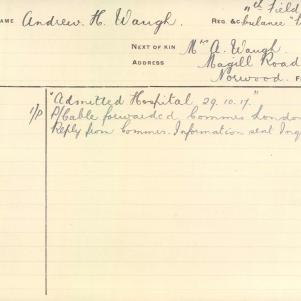 11th Field
NAME Andrew. H. Waugh. REG. &c Ambulance "
NEXT OF KIN Mrs A. Waugh.
ADDRESS Magill Road
Norwood.
"Admitted Hospital, 29.10.17."
P/Cable forwarded Commes London
Reply from Commes. Information sent Inq